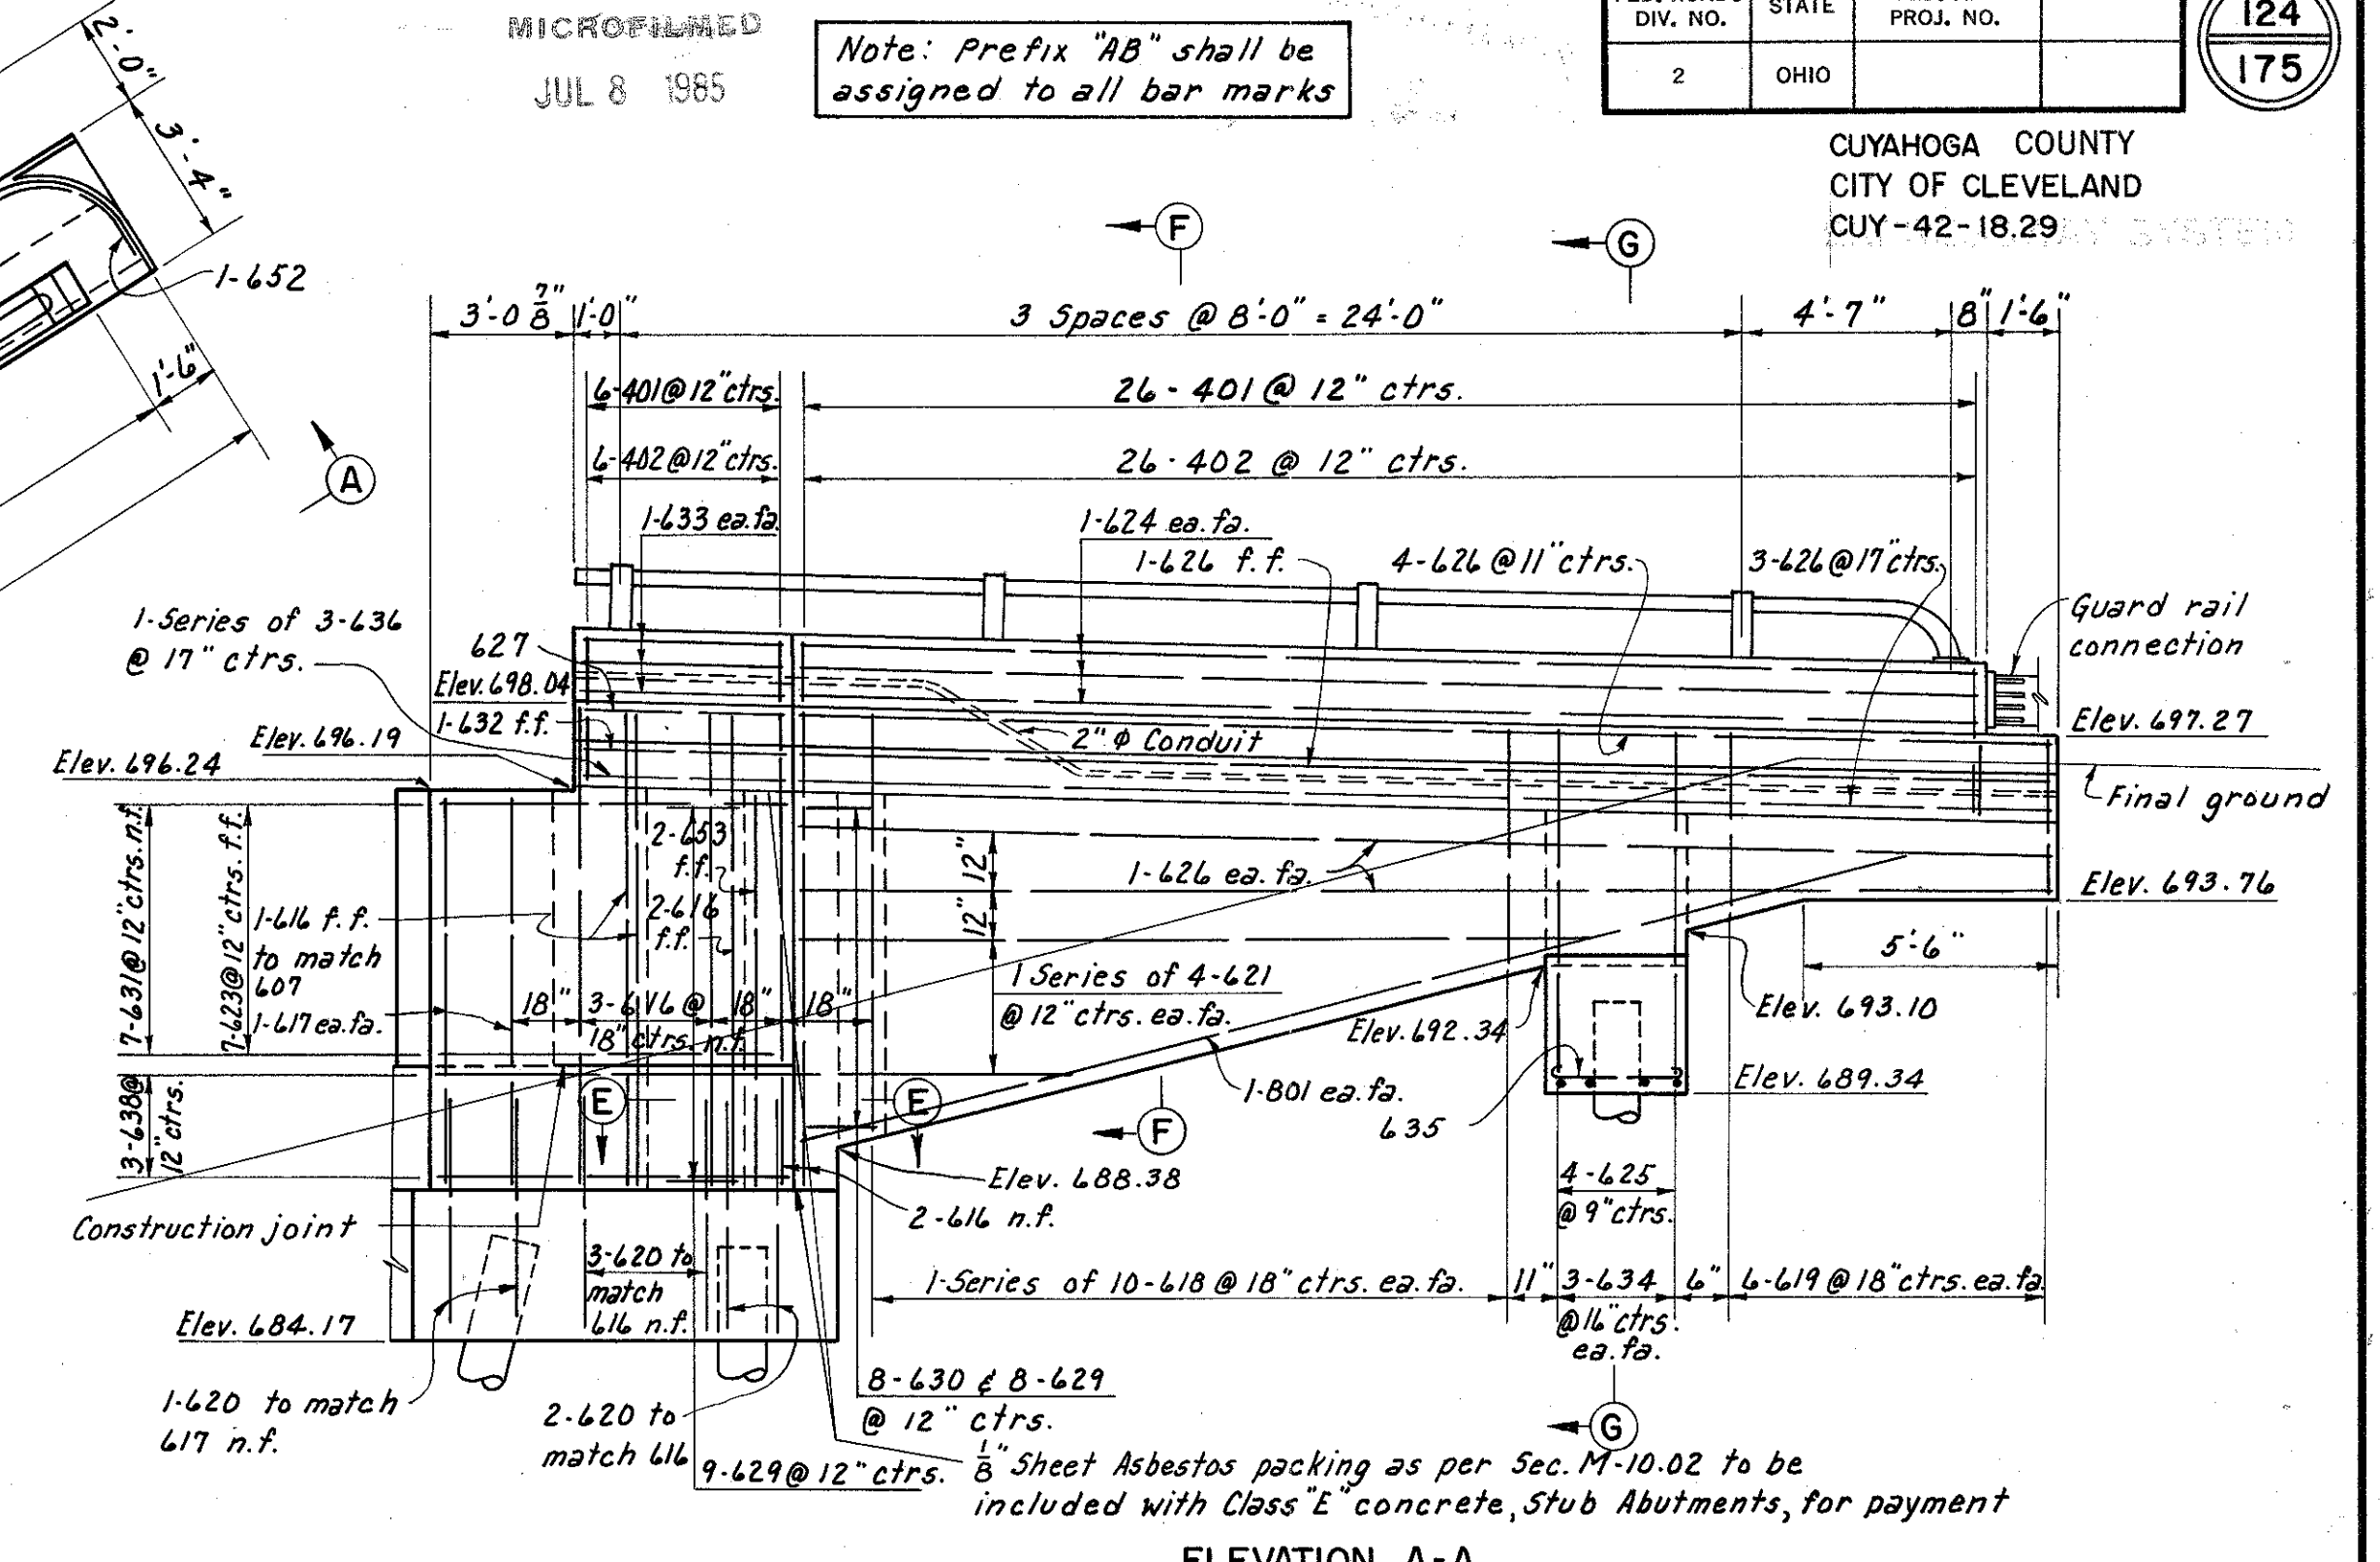 MICROFILMED
JUL 8 1985
Note: Prefix "AB" shall be
assigned to all bar marks
DIV. NO.
STATE
PROJ. NO.
2
OHIO
124
175
CUYAHOGA COUNTY
CITY OF CLEVELAND
CUY-42-18.29
2'-0"
3'-4"
1-652
1'-6"
A
F
G
3'-0 7/8"
1'-0"
3 Spaces @ 8'-0" = 24'-0"
4'-7"
8"
1'-6"
6-401@12"ctrs.
26-401 @ 12" ctrs.
6-402@12"ctrs.
26-402 @ 12" ctrs.
1-633 ea.fa.
1-624 ea.fa.
1-626 f.f.
4-626 @11"ctrs.
3-626@17"ctrs.
1-Series of 3-636
@ 17" ctrs.
627
Guard rail
connection
Elev. 698.04
1-632 f.f.
Elev. 696.19
Elev. 696.24
2" Φ Conduit
Elev. 697.27
Final ground
7-631@12"ctrs.n.f.
7-623@12"ctrs.f.f.
2-653
f.f.
12"
1-626 ea.fa.
Elev. 693.76
1-616 f.f.
to match
607
2-616
f.f.
12"
5'-6"
1-617 ea.fa.
18"
3-616@
18"ctrs. n.f.
18"
18"
1 Series of 4-621
@ 12"ctrs. ea.fa.
Elev. 692.34
Elev. 693.10
3-638@
12"ctrs.
E
E
1-801 ea.fa.
F
635
Elev. 689.34
Elev. 688.38
2-616 n.f.
4-625
@ 9"ctrs.
Construction joint
3-620 to
match
616 n.f.
1-Series of 10-618 @ 18" ctrs. ea.fa.
11"
3-634
@16"ctrs.
ea.fa.
6"
6-619 @ 18"ctrs. ea.fa.
Elev. 684.17
1-620 to match
617 n.f.
2-620 to
match 616
8-630 & 8-629
@ 12" ctrs.
G
9-629@12"ctrs.
1/8" Sheet Asbestos packing as per Sec. M-10.02 to be
included with Class "E" concrete, Stub Abutments, for payment
ELEVATION A-A